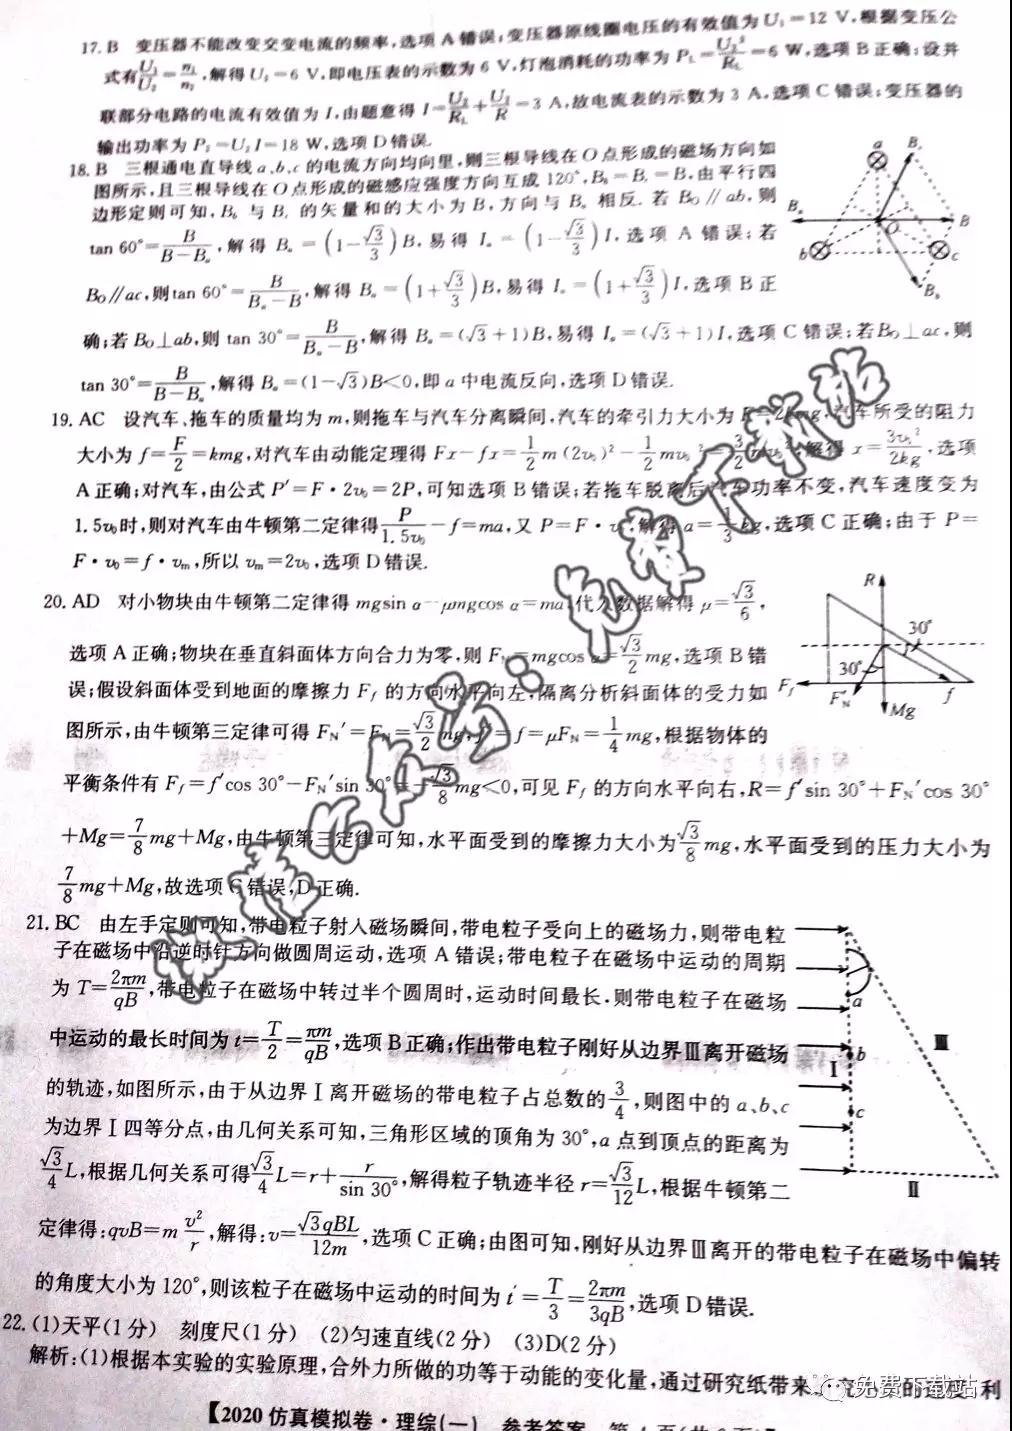 17. B 变压器不能改变交变电流的频率,选项 A 错误;变压器原线圈电压的有效值为 U₁=12 V,根据变压公
式有U₁/U₂=n₁/n₂,解得 U₂=6 V,即电压表的示数为 6 V,灯泡消耗的功率为 P_L=U₂²/R_L=6 W,选项 B 正确;设并
联部分电路的电流有效值为 I,由题意得 I=U₂/R_L+U₂/R=3 A,故电流表的示数为 3 A,选项 C 错误;变压器的
输出功率为 P₂=U₂I=18 W,选项 D 错误.
18. B 三根通电直导线 a、b、c 的电流方向均向里,则三根导线在 O 点形成的磁场方向如
图所示,且三根导线在 O 点形成的磁感应强度方向互成 120°,B_b=B_c=B,由平行四
边形定则可知,B_b 与 B_c 的矢量和的大小为 B,方向与 B_a 相反. 若 B_O∥ab,则
tan 60°=B/(B-B_a),解得 B_a=(1-√3/3)B,易得 I_a=(1-√3/3)I,选项 A 错误;若
B_O∥ac,则 tan 60°=B/(B_a-B),解得 B_a=(1+√3/3)B,易得 I_a=(1+√3/3)I,选项 B 正
确;若 B_O⊥ab,则 tan 30°=B/(B_a-B),解得 B_a=(√3+1)B,易得 I_a=(√3+1)I,选项 C 错误;若 B_O⊥ac,则
tan 30°=B/(B-B_a),解得 B_a=(1-√3)B<0,即 a 中电流反向,选项 D 错误.
a B_c
B_a O B
b c
B_b
19. AC 设汽车、拖车的质量均为 m,则拖车与汽车分离瞬间,汽车的牵引力大小为 F=2kmg,汽车所受的阻力
大小为 f=F/2=kmg,对汽车由动能定理得 Fx-fx=1/2 m(2v₀)²-1/2 mv₀²=3/2 mv₀²,解得 x=3v₀²/2kg,选项
A 正确;对汽车,由公式 P′=F·2v₀=2P,可知选项 B 错误;若拖车脱离后汽车功率不变,汽车速度变为
1.5v₀时,则对汽车由牛顿第二定律得P/1.5v₀-f=ma,又 P=F·v₀,解得 a=1/3 kg,选项 C 正确;由于 P=
F·v₀=f·v_m,所以 v_m=2v₀,选项 D 错误.
20. AD 对小物块由牛顿第二定律得 mgsin α-μmgcos α=ma,代入数据解得 μ=√3/6,
选项 A 正确;物块在垂直斜面体方向合力为零,则 F_N=mgcos α=√3/2 mg,选项 B 错
误;假设斜面体受到地面的摩擦力 F_f 的方向水平向左,隔离分析斜面体的受力如
图所示,由牛顿第三定律可得 F_N′=F_N=√3/2 mg,f′=f=μF_N=1/4 mg,根据物体的
平衡条件有 F_f=f′cos 30°-F_N′sin 30°=-√3/8 mg<0,可见 F_f 的方向水平向右,R=f′sin 30°+F_N′cos 30°
+Mg=7/8 mg+Mg,由牛顿第三定律可知,水平面受到的摩擦力大小为√3/8 mg,水平面受到的压力大小为
7/8 mg+Mg,故选项 C 错误,D 正确.
R
30°
30°
F_f F_N′ f
Mg
21. BC 由左手定则可知,带电粒子射入磁场瞬间,带电粒子受向上的磁场力,则带电粒
子在磁场中沿逆时针方向做圆周运动,选项 A 错误;带电粒子在磁场中运动的周期
为 T=2πm/qB,带电粒子在磁场中转过半个圆周时,运动时间最长.则带电粒子在磁场
中运动的最长时间为 t=T/2=πm/qB,选项 B 正确;作出带电粒子刚好从边界Ⅲ离开磁场
的轨迹,如图所示,由于从边界Ⅰ离开磁场的带电粒子占总数的3/4,则图中的 a、b、c
为边界Ⅰ四等分点,由几何关系可知,三角形区域的顶角为 30°,a 点到顶点的距离为
√3/4 L,根据几何关系可得√3/4 L=r+r/sin 30°,解得粒子轨迹半径 r=√3/12 L,根据牛顿第二
定律得:qvB=m v²/r,解得:v=√3qBL/12m,选项 C 正确;由图可知,刚好从边界Ⅲ离开的带电粒子在磁场中偏转
的角度大小为 120°,则该粒子在磁场中运动的时间为 t′=T/3=2πm/3qB,选项 D 错误.
a
b
c
Ⅰ Ⅲ
Ⅱ
22. (1)天平(1分) 刻度尺(1分) (2)匀速直线(2分) (3)D(2分)
解析:(1)根据本实验的实验原理,合外力所做的功等于动能的变化量,通过研究纸带来研究小车的速度,利
【2020 仿真模拟卷·理综(一) 参考答案
微信公众号:免费下载站
免费下载站